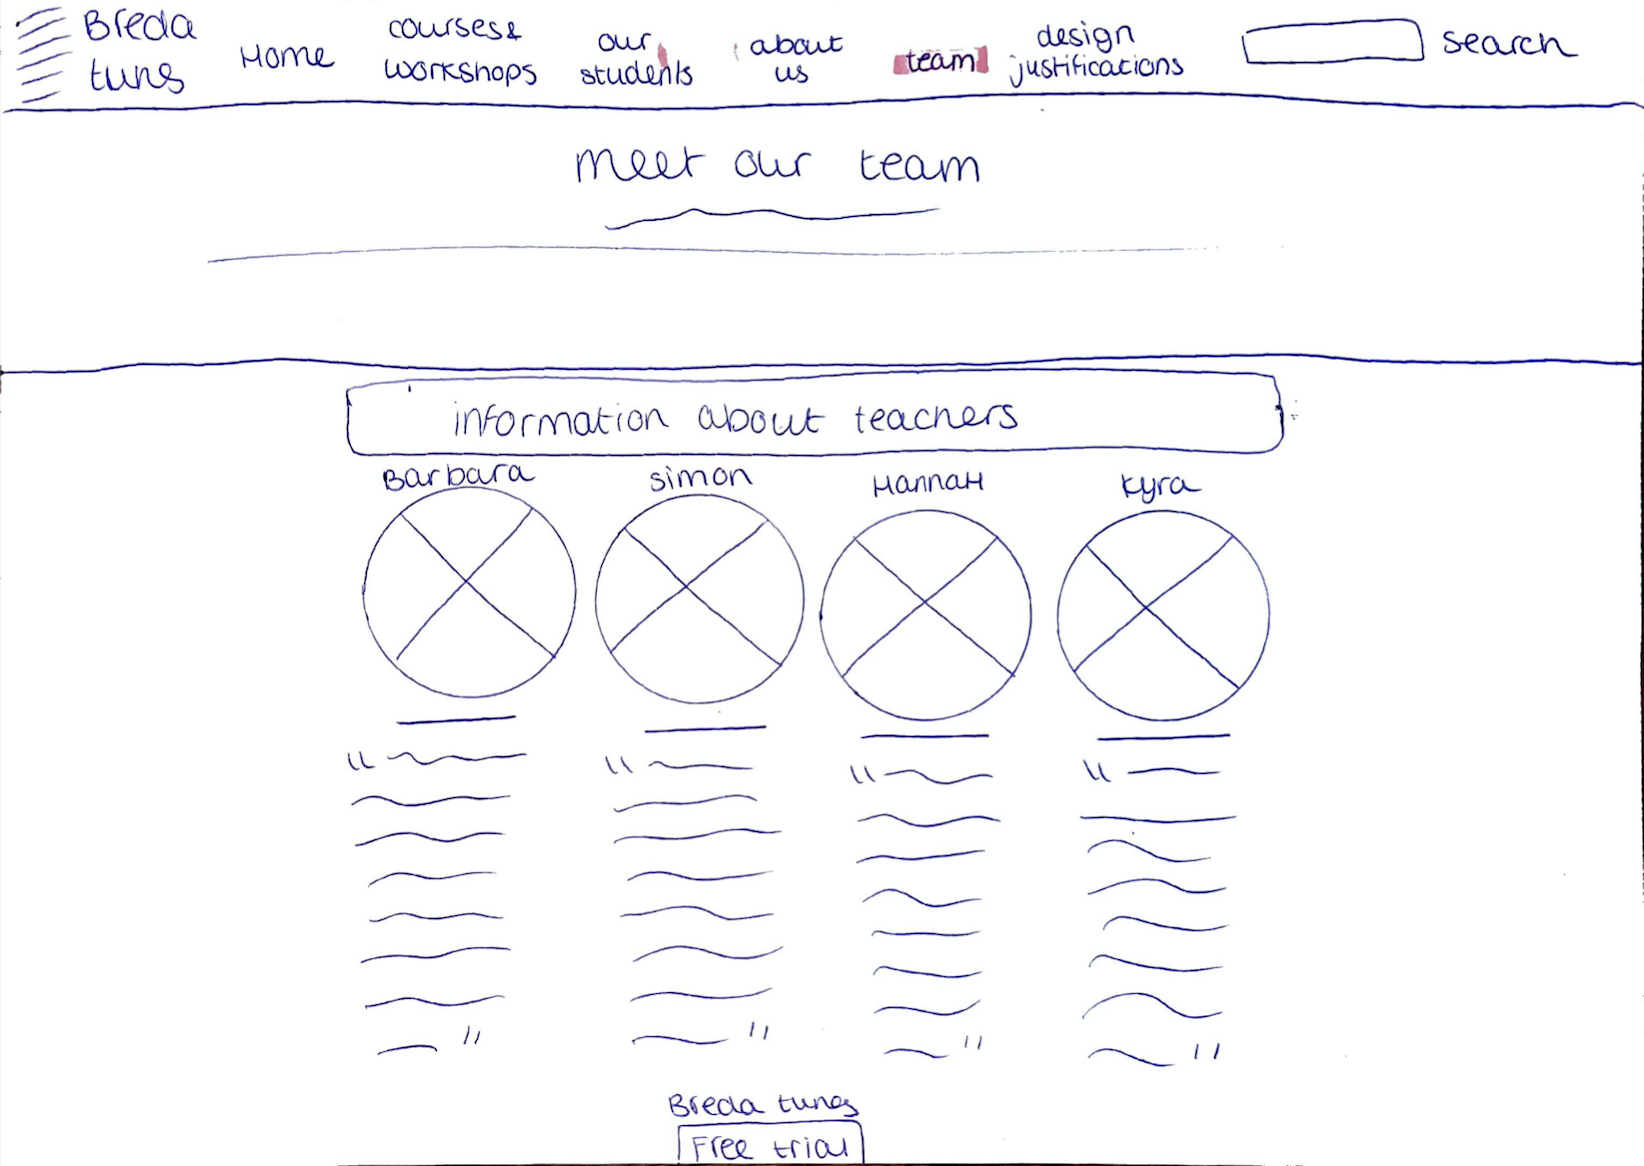 Breda
tuns
Home
courses&
workshops
our
students
about
us
team
design
justifications
search
meet our team
information about teachers
Barbara
simon
HannaH
kyra
Breda tunes
Free trial